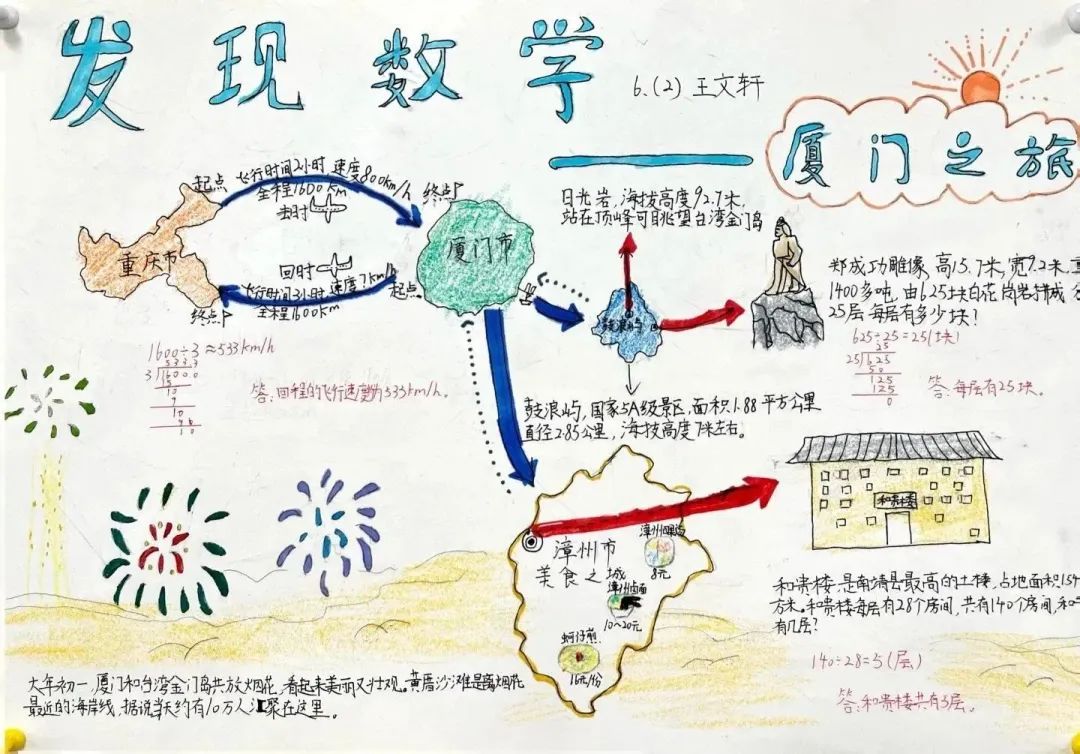 发现数学
6.(2) 王文轩
厦门之旅
起点
飞行时间2小时 速度800km/h
全程1600km
去时
终点
重庆市
厦门市
回时
飞行时间3小时 速度?km/h
全程1600km
起点
终点
1600÷3≈533km/h
533.3
3 1600.0
15
10
9
10
10
答:回程的飞行速度为533km/h。
日光岩,海拔高度92.7米,
站在顶峰可目眺望台湾金门岛
鼓浪屿
鼓浪屿,国家5A级景区,面积1.88平方公里
直径2.85公里,海拔高度7米左右。
郑成功雕像,高15.7米,宽9.2米,重
1400多吨,由625块白花岗岩铸成,分
25层,每层有多少块?
625÷25=25(块)
25
25 625
50
125
125
0
答:每层有25块。
漳州市
美食之城
漳州四果汤
8元
漳州卤面
10~20元
蚵仔煎
16元/份
和贵楼
和贵楼,是南靖县最高的土楼,占地面积154
方米。和贵楼每层有28个房间,共有140个房间,和
有几层?
140÷28=5(层)
答:和贵楼共有5层。
大年初一,厦门和台湾金门岛共放烟花,看起来美丽又壮观。黄厝沙滩是离烟花
最近的海岸线,据说当天约有10万人汇聚在这里。